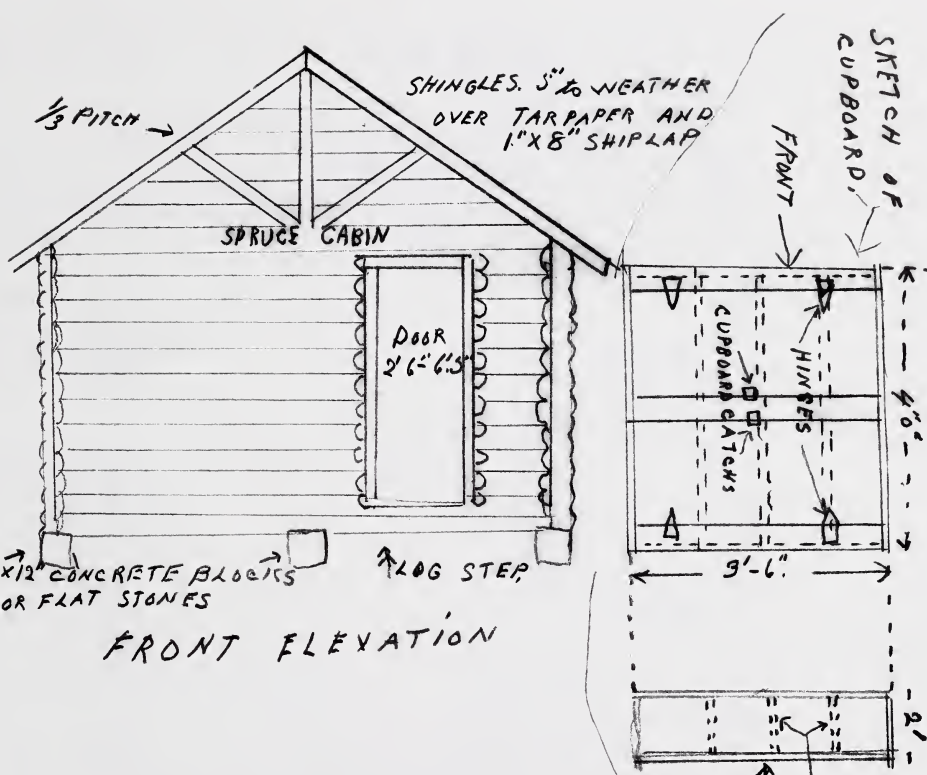 SHINGLES. 5" to WEATHER
OVER TARPAPER AND
1"X8" SHIPLAP
1/3 PITCH
SPRUCE CABIN
DOOR
2'6"-6'.5"
X12" CONCRETE BLOCKS
OR FLAT STONES
LOG STEP.
FRONT ELEVATION
SKETCH OF
CUPBOARD.
FRONT
HINGES
CUPBOARD CATCHS
4'0"
3'-6".
2'